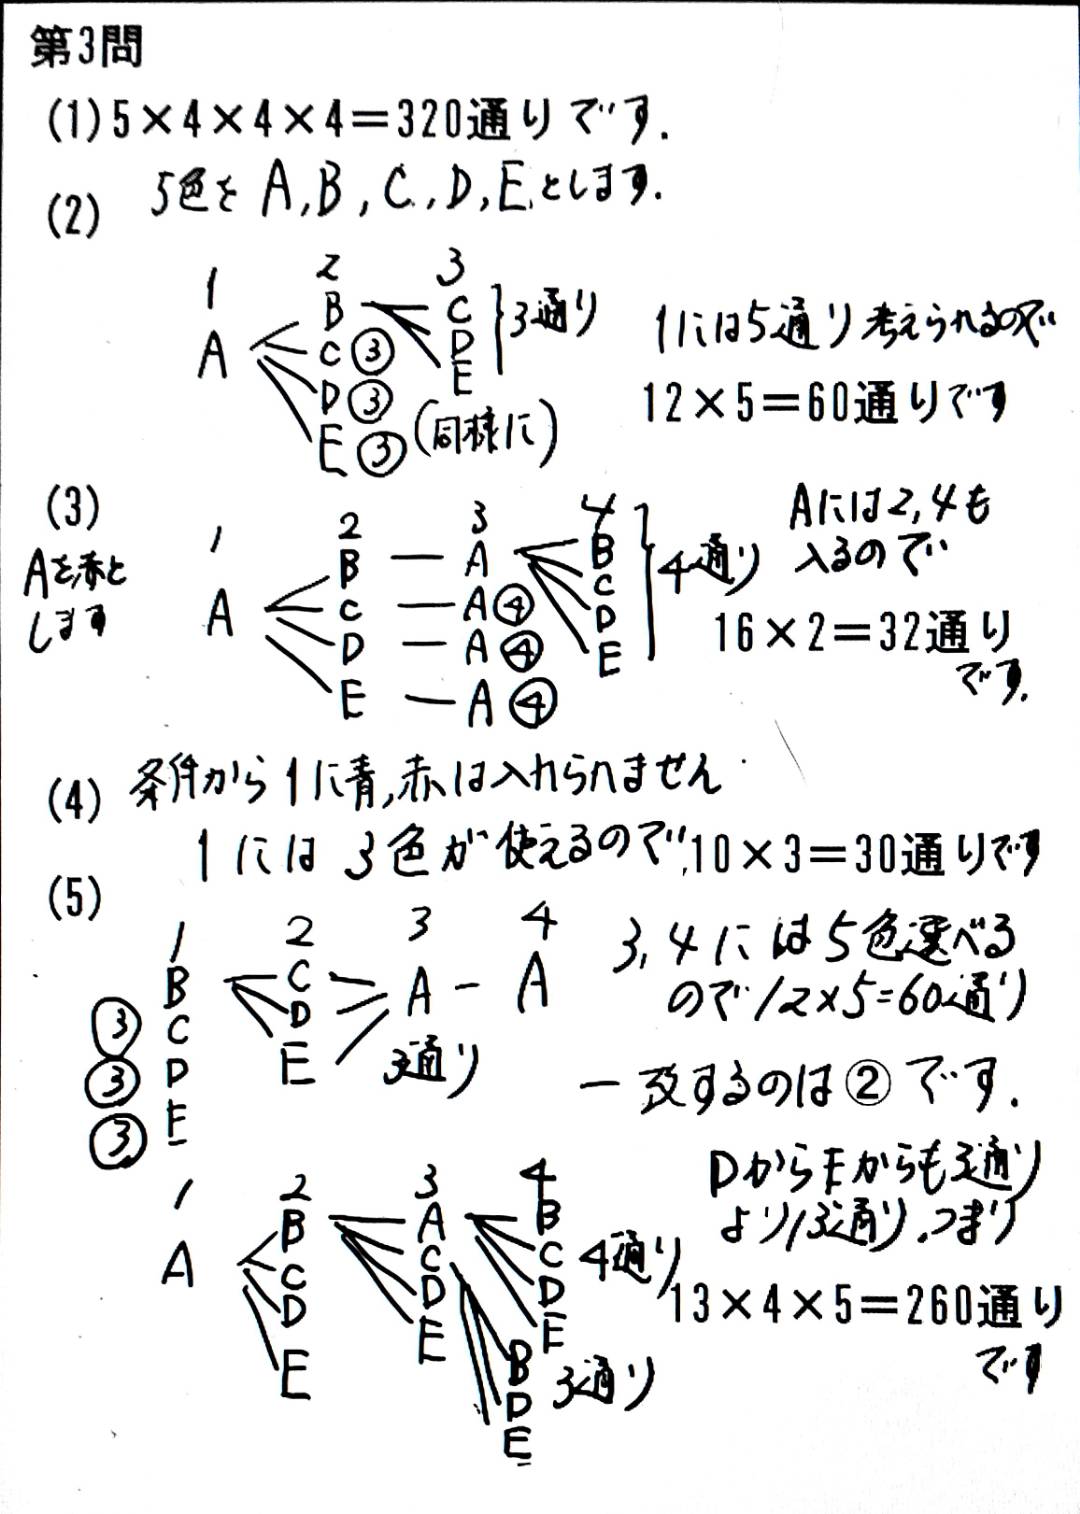 第3問
(1) 5×4×4×4=320通りです.
(2) 5色を A, B, C, D, E とします.
1 2 3
A B C
C ③ D
D ③ E
E ③
3通り
(同様に)
1には5通り考えられるので
12×5=60通りです
(3)
Aを赤と
します
1 2 3 4
A B A B
C A④ C
D A④ D
E A④ E
4通り
Aには2,4も
入るので
16×2=32通り
です.
(4) 条件から1に青,赤は入れられません
1には3色が使えるので,10×3=30通りです
(5)
1 2 3 4
B C A A
③ C D
③ D E
③ E
3通り
3,4には5色選べる
ので12×5=60通り
一致するのは②です.
1 2 3 4
A B A B
C C C
D D D
E E E
4通り
B
D
E
3通り
DからEからも3通り
より13通り.つまり
13×4×5=260通り
です